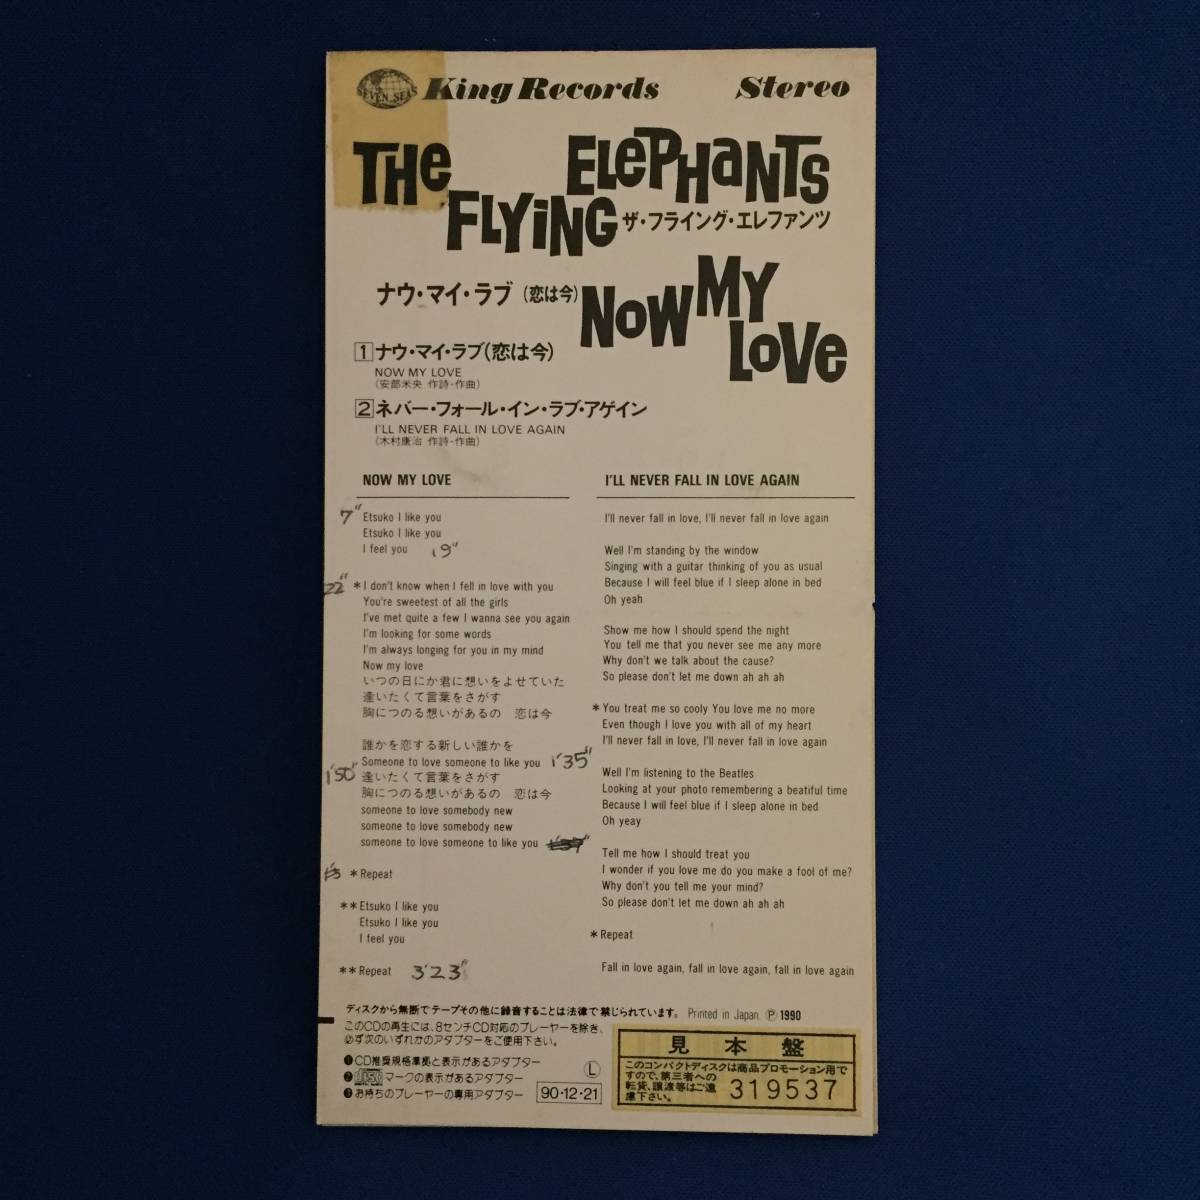 SEVEN SEAS King Records Stereo
THe FLYiNG ELePHaNTS
ザ・フライング・エレファンツ
ナウ・マイ・ラブ (恋は今) NoW MY LoVe
1 ナウ・マイ・ラブ(恋は今)
NOW MY LOVE
(安部米央 作詩・作曲)
2 ネバー・フォール・イン・ラブ・アゲイン
I'LL NEVER FALL IN LOVE AGAIN
(木村康治 作詩・作曲)
NOW MY LOVE
7" Etsuko I like you
Etsuko I like you
I feel you 19"
22" *I don't know when I fell in love with you
You're sweetest of all the girls
I've met quite a few I wanna see you again
I'm looking for some words
I'm always longing for you in my mind
Now my love
いつの日にか君に想いをよせていた
逢いたくて言葉をさがす
胸につのる想いがあるの 恋は今
誰かを恋する新しい誰かを
Someone to love someone to like you 1'35"
1'50" 逢いたくて言葉をさがす
胸につのる想いがあるの 恋は今
someone to love somebody new
someone to love somebody new
someone to love someone to like you
*Repeat
**Etsuko I like you
Etsuko I like you
I feel you
**Repeat 3'23"
I'LL NEVER FALL IN LOVE AGAIN
I'll never fall in love, I'll never fall in love again
Well I'm standing by the window
Singing with a guitar thinking of you as usual
Because I will feel blue if I sleep alone in bed
Oh yeah
Show me how I should spend the night
You tell me that you never see me any more
Why don't we talk about the cause?
So please don't let me down ah ah ah
*You treat me so cooly You love me no more
Even though I love you with all of my heart
I'll never fall in love, I'll never fall in love again
Well I'm listening to the Beatles
Looking at your photo remembering a beatiful time
Because I will feel blue if I sleep alone in bed
Oh yeay
Tell me how I should treat you
I wonder if you love me do you make a fool of me?
Why don't you tell me your mind?
So please don't let me down ah ah ah
*Repeat
Fall in love again, fall in love again, fall in love again
ディスクから無断でテープその他に録音することは法律で禁じられています。 Printed in Japan. Ⓟ 1990
このCDの再生には、8センチCD対応のプレーヤーを除き、
必ず次のいずれかのアダプターをご使用下さい。
❶CD推奨規格準拠と表示があるアダプター
❷disc マークの表示があるアダプター
❸お持ちのプレーヤーの専用アダプター
Ⓛ
90・12・21
見本盤
このコンパクトディスクは商品プロモーション用で
すので、第三者への
転貸、譲渡等はご遠
慮下さい。
319537